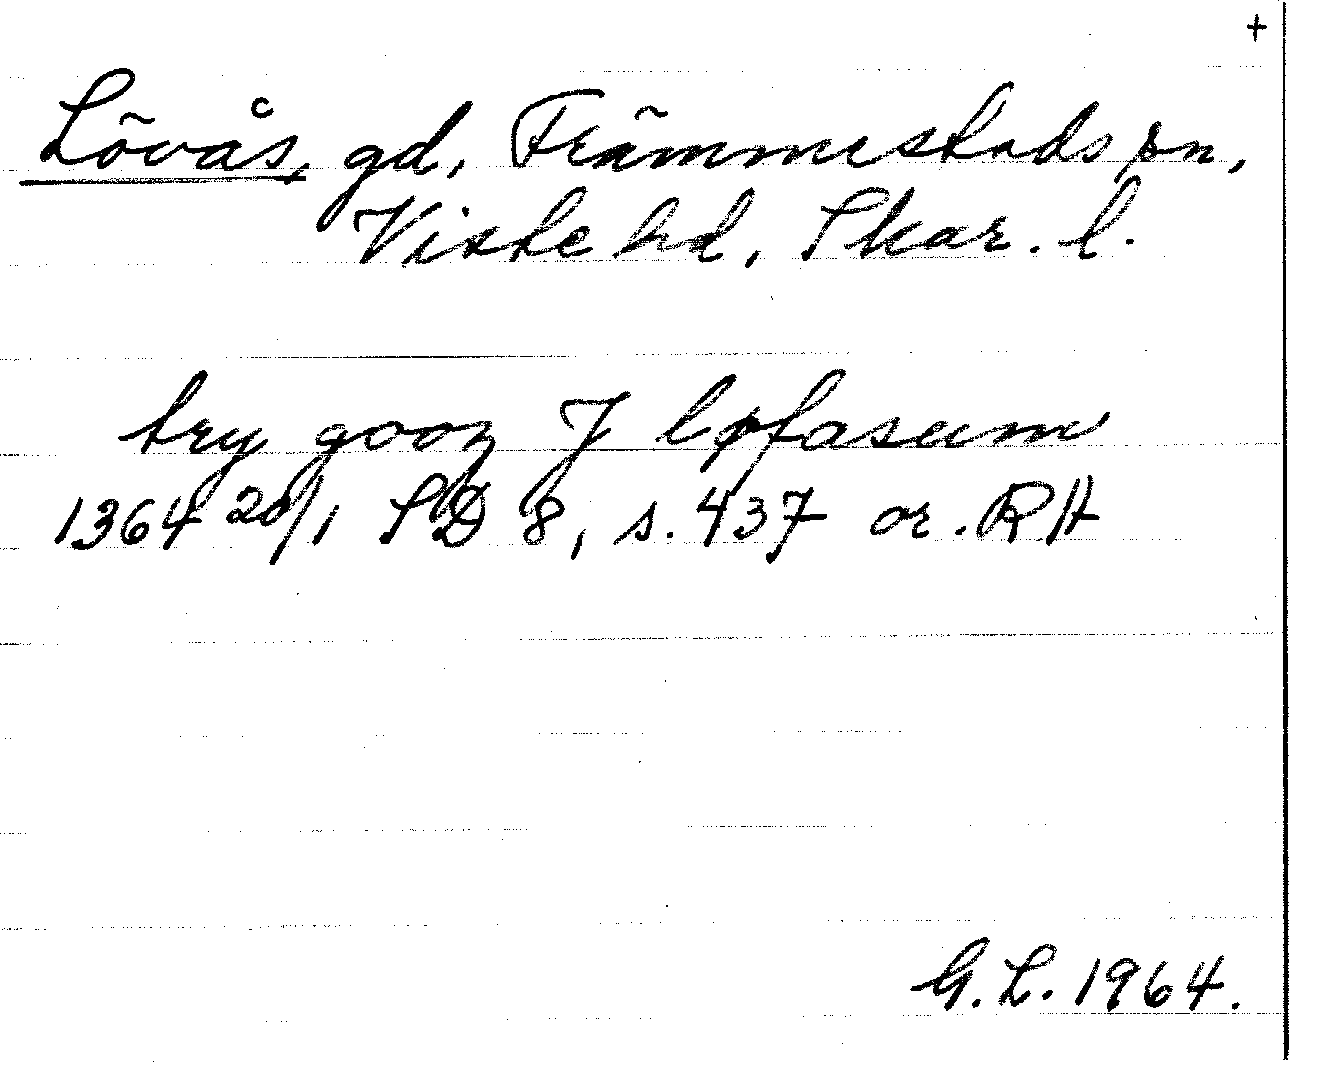 +
Lövås, gd, Främmestads sn,
Viste hd, Skar. l.
try gooz J løfasum
1364 20/1 SD 8, s. 437 or. RH
G. L. 1964.